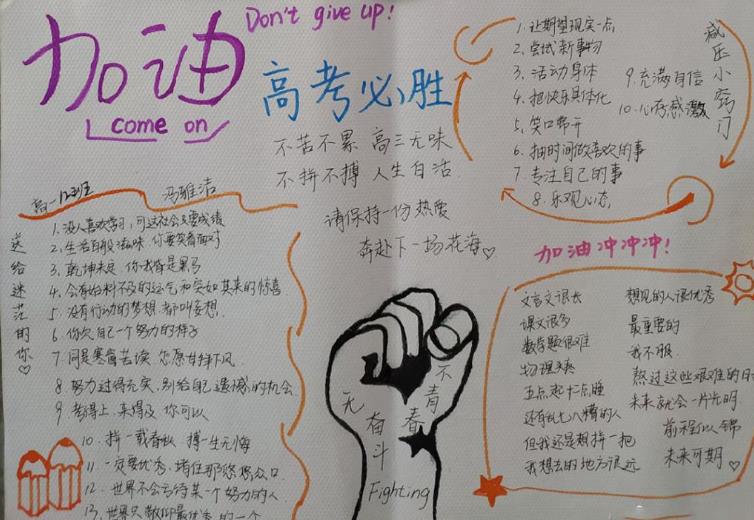 加油
come on
Don't give up!
高考必胜
不苦不累 高三无味
不拼不搏 人生白活
请保持一份热度
奔赴下一场花海
减压小窍门
1. 让期望现实一点
2. 尝试新事物
3. 活动身体
4. 把快乐具体化
5. 笑口常开
6. 抽时间做喜欢的事
7. 专注自己的事
8. 乐观心态
9. 充满自信
10. 心存感激
高一12班
冯雅洁
送给迷茫的你
1. 没人喜欢学习，可这社会只要成绩
2. 生活百般滋味 你要笑着面对
3. 乾坤未定 你我皆是黑马
4. 会有始料不及的运气和突如其来的惊喜
5. 没有行动的梦想 都叫妄想
6. 你欠自己一个努力的样子
7. 同是寒窗苦读 怎愿甘拜下风
8. 努力过得充实，别给自己遗憾的机会
9. 考得上，来得及 你可以
10. 拼一载春秋 搏一生无悔
11. 一定要优秀，堵住那悠悠众口
12. 世界不会亏待某一个努力的人
13. 世界只
的一个
无奋斗
不青春
Fighting
加油冲冲冲!
文言文很长
课文很多
数学题很难
物理
五点起十二点睡
还有乱七八糟的人
但我还是想拼一把
我想去的地方很远
想见的人很优秀
最重要的
我不服
熬过这些艰难的日
未来就会一片光明
前程似锦
未来可期